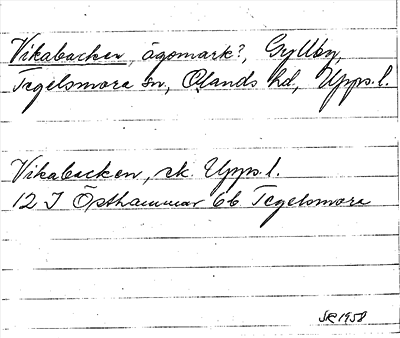 Vikabacken, ägomark?, Gyllby,
Tegelsmora sn, Olands hd, Upps.l.
Vikabacken, rk. Upps.l.
12 I Östhammar 6b Tegelsmora
SR 1958